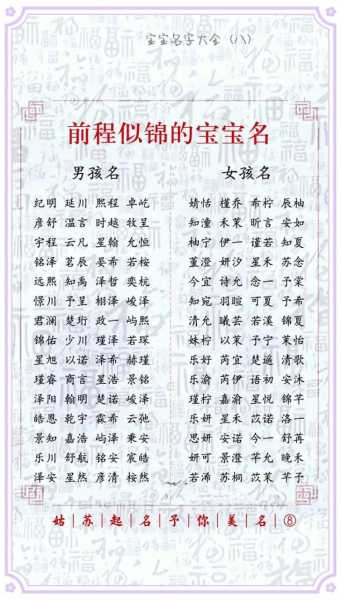 宝宝名字大全（八）
前程似锦的宝宝名
男孩名 女孩名
纪明 延川 熙程 卓屹 婧恬 槿乔 希柠 辰柚
彦舒 温言 时越 牧呈 知潼 禾茉 昕言 安如
宇程 云凡 星翰 允恒 柚宁 伊一 谨若 知夏
铭泽 茗辰 晏希 若桉 堇澄 妍汐 星禾 苏念
远熙 知禹 泽哲 奕杭 今宜 诗允 念一 予棠
憬川 予呈 栩泽 峻泽 知宛 羽暄 可夏 予希
君澜 楚珩 政一 屿熙 清允 曦芸 若溪 锦夏
锦佑 少川 瑾泽 若琛 妹柠 以茉 予宁 茉怡
星旭 以诺 泽希 赫瑾 乐妤 芮宜 楚遥 清歌
瑾睿 商言 星浩 景铭 乐渝 芮伊 语初 安沐
泽阳 翰明 楚诺 峻泽 瑾柠 嘉渝 星悦 锦芊
皓恩 乾宇 霖希 云弛 乐妍 星禾 苡诺 洛一
景知 嘉浩 屿泽 秉安 思妍 安诺 今一 舒苒
乐川 舒航 铭安 宸皓 妍可 景澄 芊允 晚禾
泽安 星然 彦清 桉然 若浠 苏桐 苡茉 芊予
姑|苏|起|名|予|你|美|名|⑧